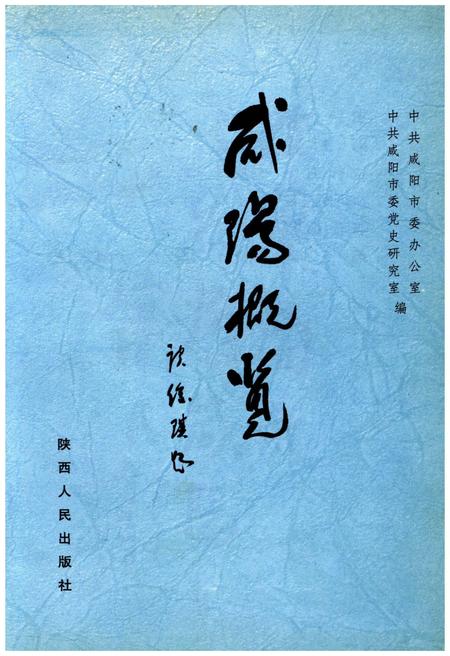 中共咸阳市委办公室
中共咸阳市委党史研究室 编
咸阳概览
陕西人民出版社